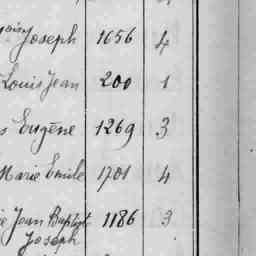 Joseph 1656 4
Louis Jean 200 1
Eugène 1269 3
Marie Emile 1701 4
Jean Baptiste 1186 3
Joseph